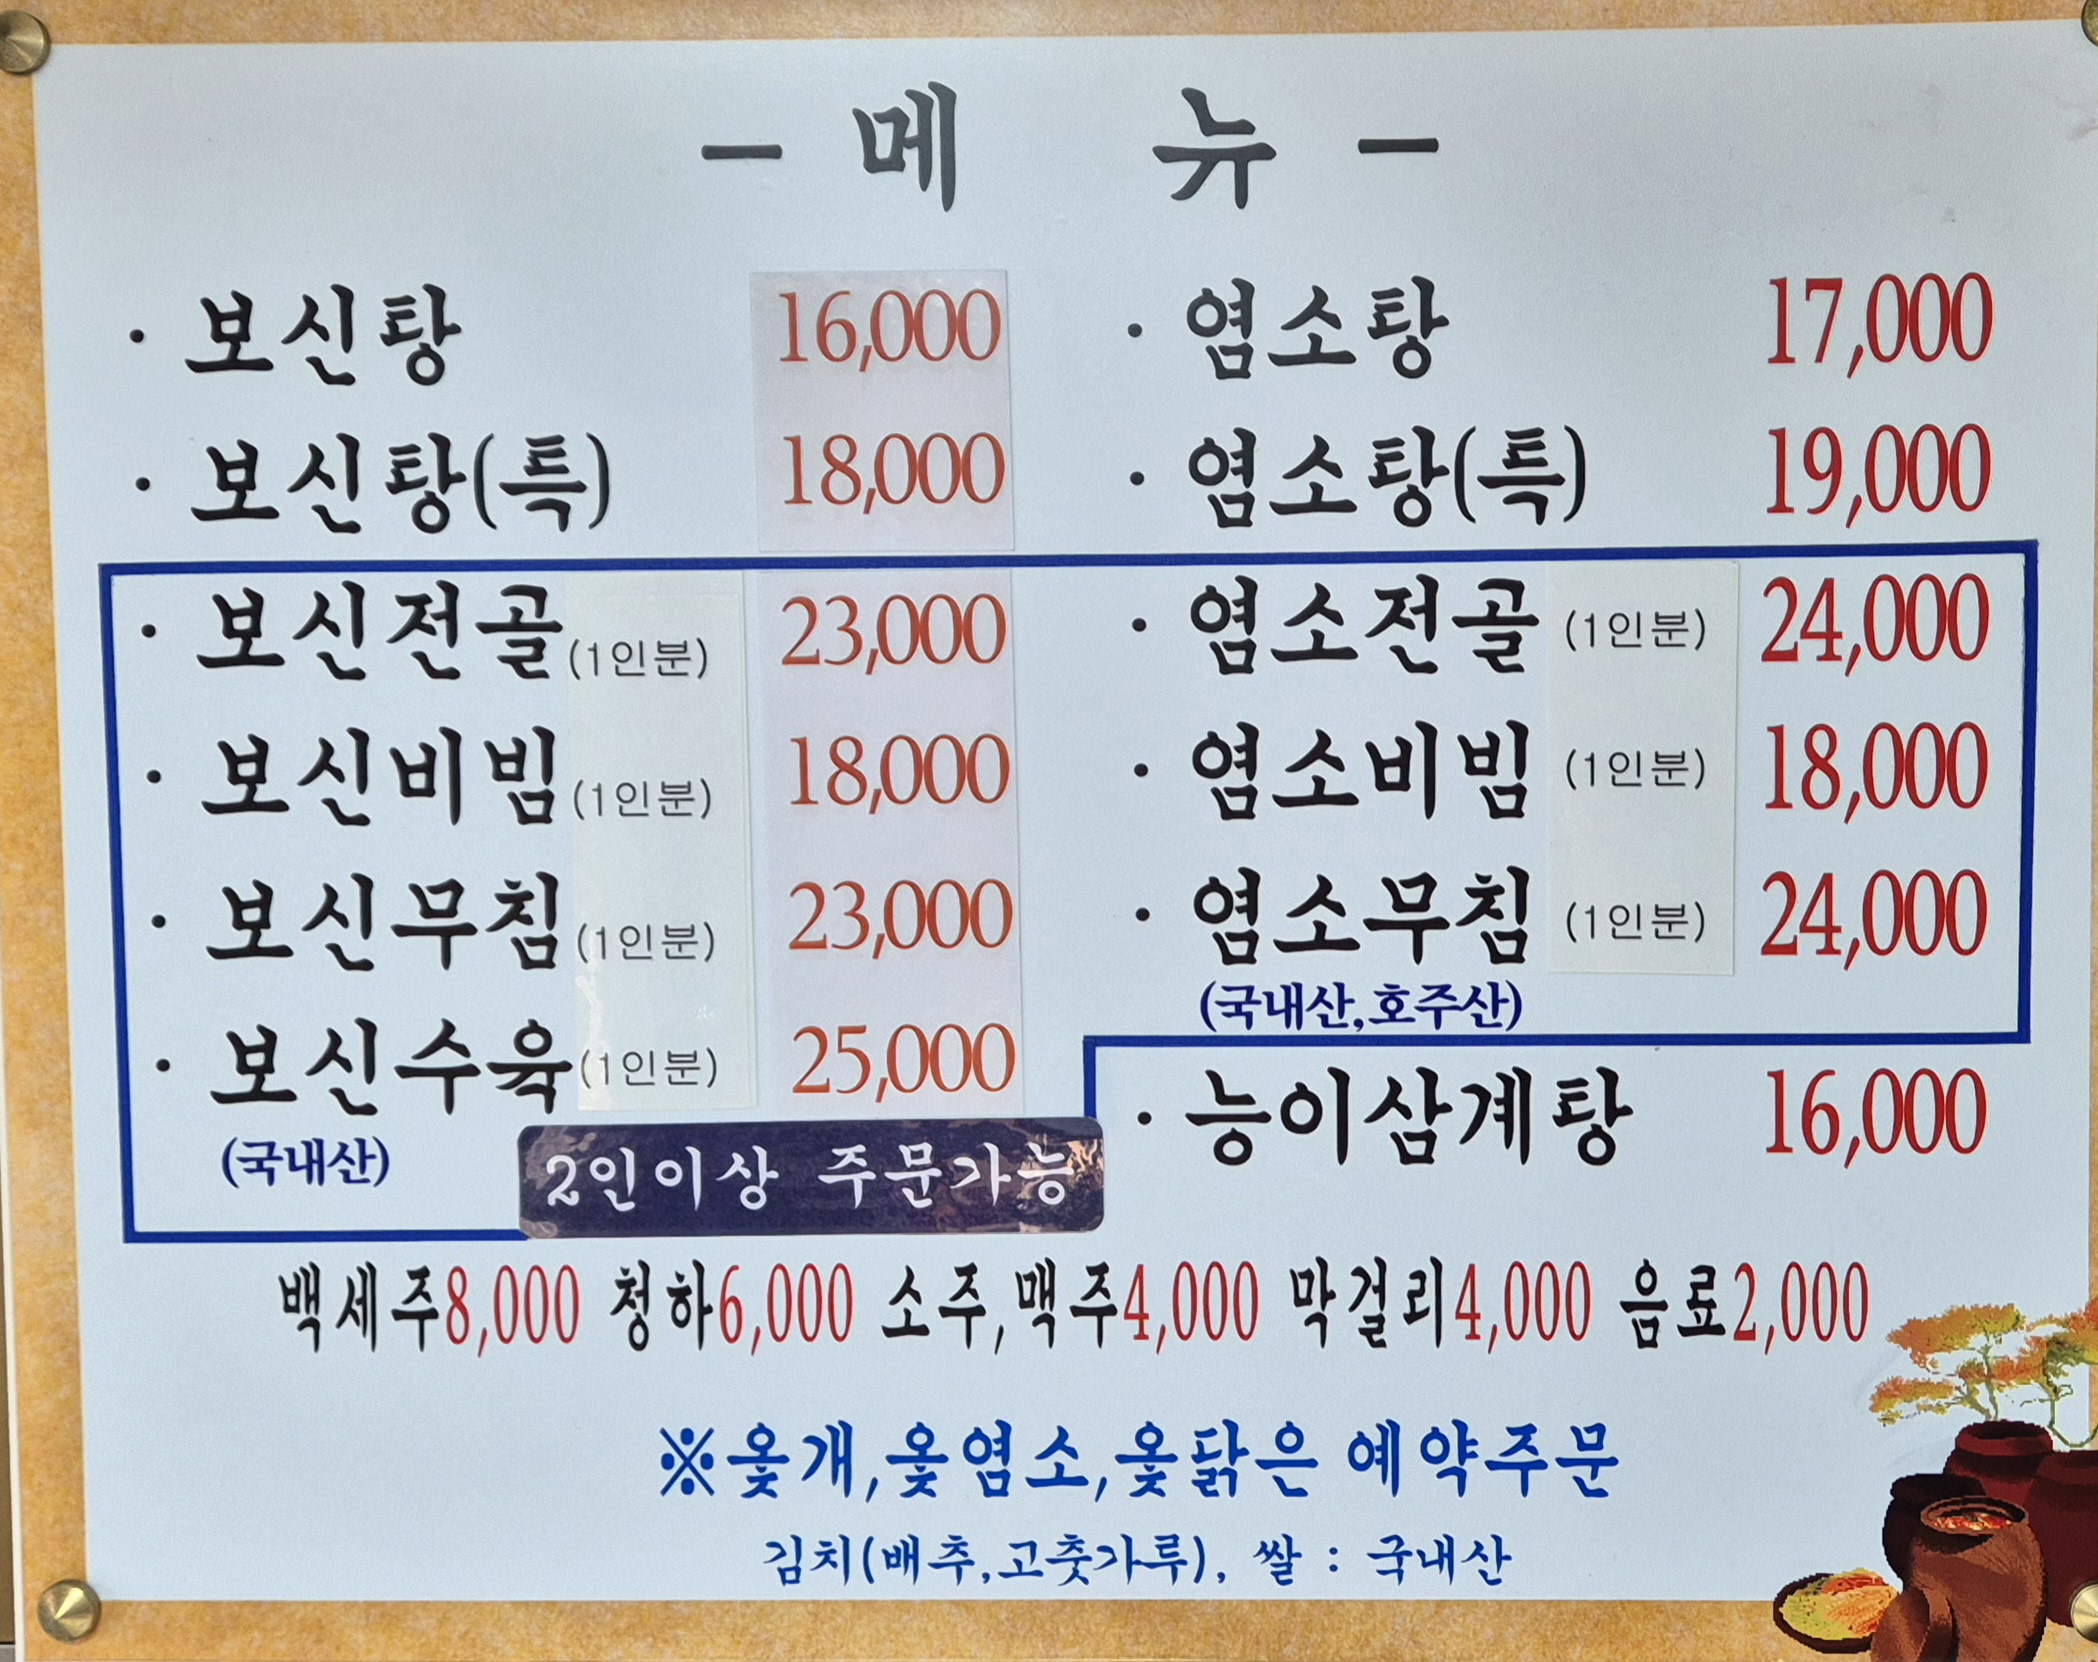 - 메 뉴 -
· 보신탕 16,000
· 보신탕(특) 18,000
· 보신전골(1인분) 23,000
· 보신비빔(1인분) 18,000
· 보신무침(1인분) 23,000
· 보신수육(1인분) 25,000
(국내산)
2인이상 주문가능
· 염소탕 17,000
· 염소탕(특) 19,000
· 염소전골 (1인분) 24,000
· 염소비빔 (1인분) 18,000
· 염소무침 (1인분) 24,000
(국내산,호주산)
· 능이삼계탕 16,000
백세주8,000 청하6,000 소주,맥주4,000 막걸리4,000 음료2,000
※옻개,옻염소,옻닭은 예약주문
김치(배추,고춧가루), 쌀 : 국내산